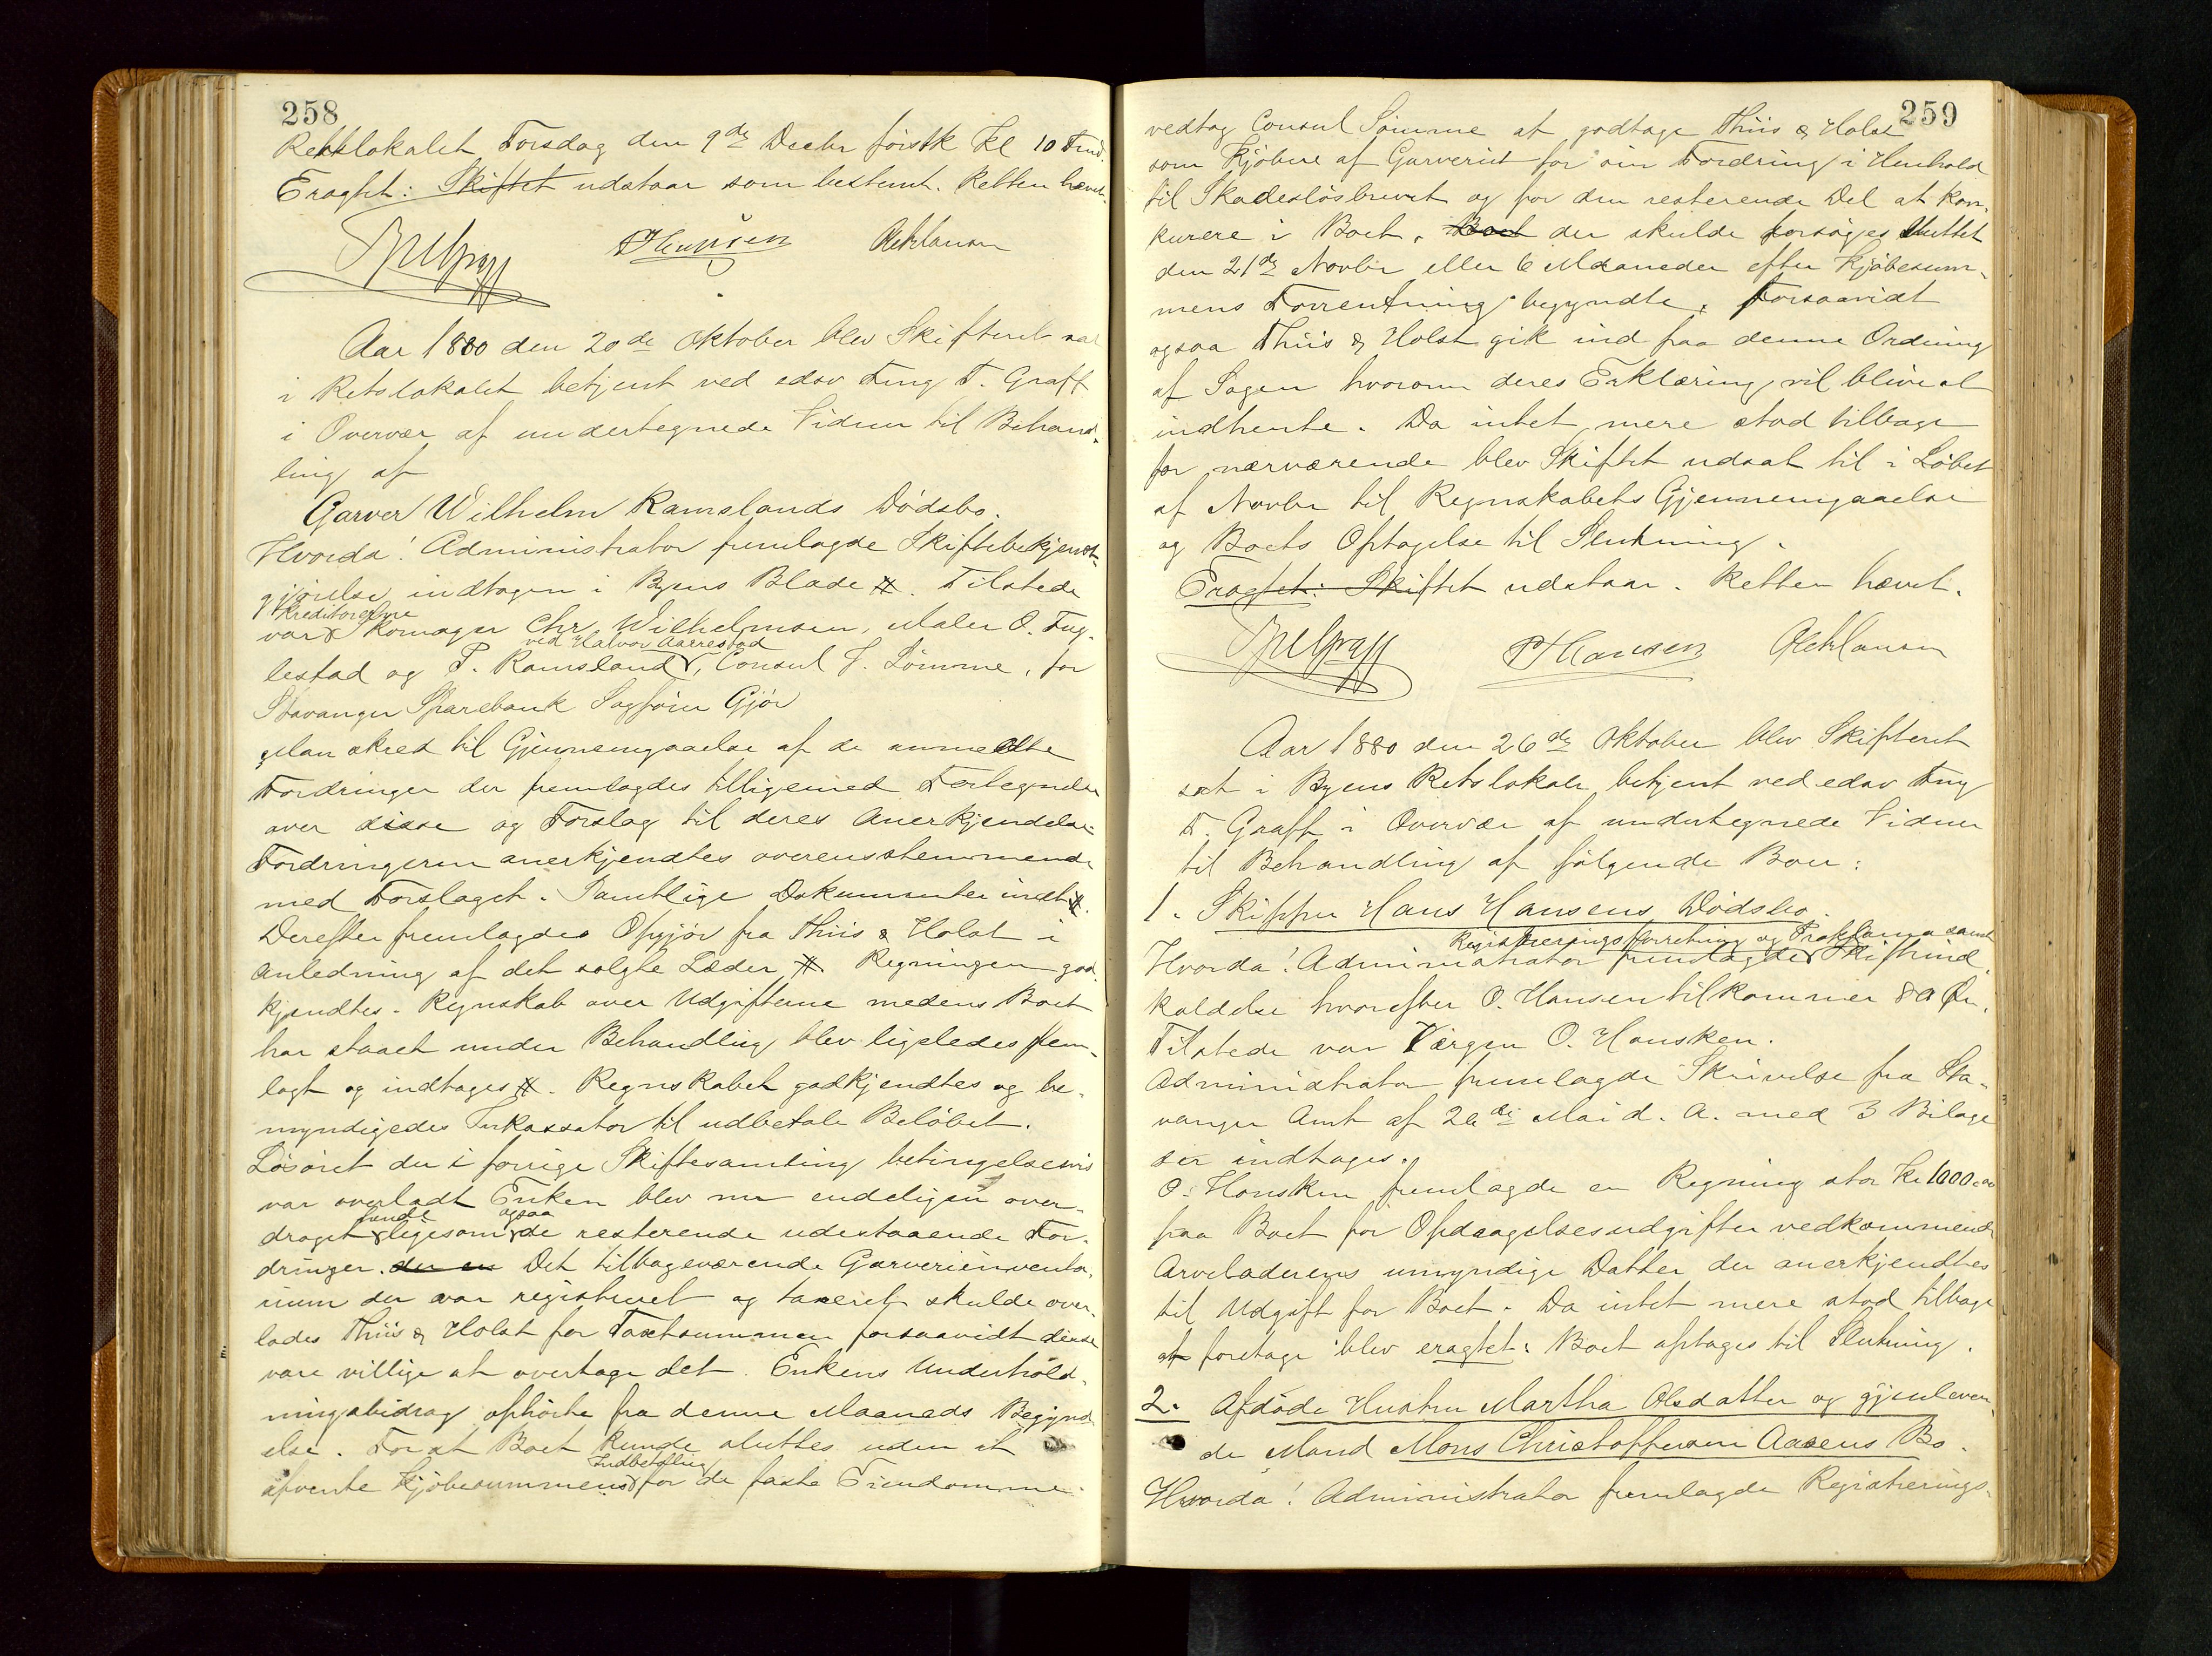 258
Retslokalet Torsdag den 9de Decbr førstk Kl 10 Fmd.
Eragtet: Skiftet udstaar som bestemt. Retten hævet.
P Hansen
Aar 1880 den 20de Oktober blev Skifteret sat
i Retslokalet betjent ved edsv Fmg F. Graff
i Overvær af undertegnede Vidner til Behand-
ling af
Garver Wilhelm Ramslands Dødsbo.
Hvorda! Administrator fremlagde Skiftebekjendt-
gjørelse indtagen i Byens Blade #. Tilstede
Kreditorerne
var Komager Chr. Wilhelmsen, Maler O. Fug-
ved Halvor Aarrestad
lestad og P. Ramsland, Consul J. Sømme, for
Stavanger Sparebank Sagfører Gjør
Man skred til Gjennemgaaelse af de anmeldte
Fordringer der fremlagdes tilligemed Fortegnelse
over disse og Forslag til deres Anerkjendelse
Fordringerne anerkjendtes overensstemmende
med Forslaget. Samtlige Dokumenter indt #.
Derefter fremlagdes Opgjør fra Thiis & Holst i
Anledning af det solgte Læder, # Regningen god-
kjendtes. Regnskab over Udgifterne medens Boet
har staaet under Behandling blev ligeledes frem-
lagt og indtages #. Regnskabet godkjendtes og be-
myndigedes Inkassator til udbetale Beløbet.
Løsøret der i forrige Skiftesamling betingelsesvis
var overladt Enken blev nu endeligen over-
hende ogsaa
draget ligesom de resterende udestaaende For-
dringer. der en Det tilbageværende Garveriinventa-
rium der var registreret og taxeret skulde over-
lades Thiis & Holst for Taxtsummen forsaavidt disse
vare villige at overtage det. Enkens Underhold-
ningsbidrag ophørte fra denne Maaneds Begynd-
else. For at Boet kunde sluttes uden at
Indbetaling
afvente Kjøbesummens for de faste Eiendomme
259
vedtog Consul Sømme at godtage Thiis & Holst
som Kjøbere af Garveriet for sin Fordring i Henhold
til Skadesløsbrevet og for den resterende Del at kon-
kurere i Boet. Boet der skulde forsøges sluttet
den 21de Novbr eller 6 Maaneder efter Kjøbesum-
mens Forrentning begyndte, forsaavidt
ogsaa Thiis & Holst gik ind paa denne Ordning
af Sagen hvorom deres Erklæring vil blive at
indhente. Da intet mere stod tilbage
for nærværende blev Skiftet udsat til i Løbet
af Novbr til Regnskabets Gjennemgaaelse
og Boets Optagelse til Slutning.
Eragtet: Skiftet udstaar. Retten hævet.
P Hansen
Aar 1880 den 26de Oktober blev Skifteret
sat i Byens Retslokale betjent ved edsv Fmg
F. Graff i Overvær af undertegnede Vidner
til Behandling af følgende Boer:
1. Skipper Hans Hansens Dødsbo.
Registreringsforretning og Proklama samt
Hvorda! Administrator fremlagde Skifteind-
kaldelse hvorefter O. Hansen tilkommer 80 Øre.
Tilstede var Værgen O. Hausken.
Administrator fremlagde Skrivelse fra Sta-
vanger Amt af 26de Mai d. A. med 3 Bilage
der indtages.
O. Hausken fremlagde en Regning stor Kr 1000.00
paa Boet for Opdragelsesudgifter vedkommende
Arveladerens umyndige Datter der anerkjendtes
til Udgift for Boet. Da intet mere stod tilbage
at foretage blev eragtet: Boet optages til Slutning.
2. Afdøde Hustru Martha Olsdatter og gjenleven-
de Mand Mons Christoffersen Aasens Bo.
Hvorda! Administrator fremlagde Registrerings-